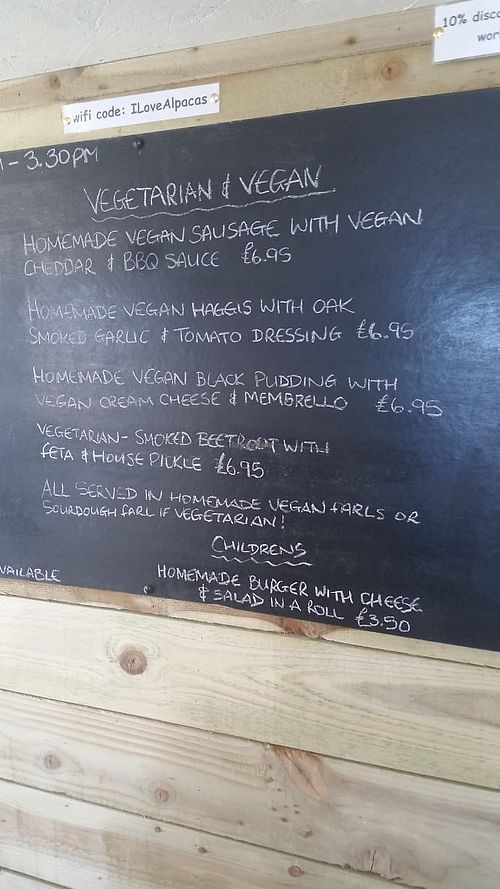 10% disco
wor
wifi code: ILoveAlpacas
- 3.30PM
VEGETARIAN & VEGAN
HOMEMADE VEGAN SAUSAGE WITH VEGAN
CHEDDAR & BBQ SAUCE £6.95
HOMEMADE VEGAN HAGGIS WITH OAK
SMOKED GARLIC & TOMATO DRESSING £6.95
HOMEMADE VEGAN BLACK PUDDING WITH
VEGAN CREAM CHEESE & MEMBRELLO £6.95
VEGETARIAN- SMOKED BEETROOT WITH
FETA & HOUSE PICKLE £6.95
ALL SERVED IN HOMEMADE VEGAN FARLS OR
SOURDOUGH FARL IF VEGETARIAN!
CHILDRENS
VAILABLE
HOMEMADE BURGER WITH CHEESE
& SALAD IN A ROLL £3.50